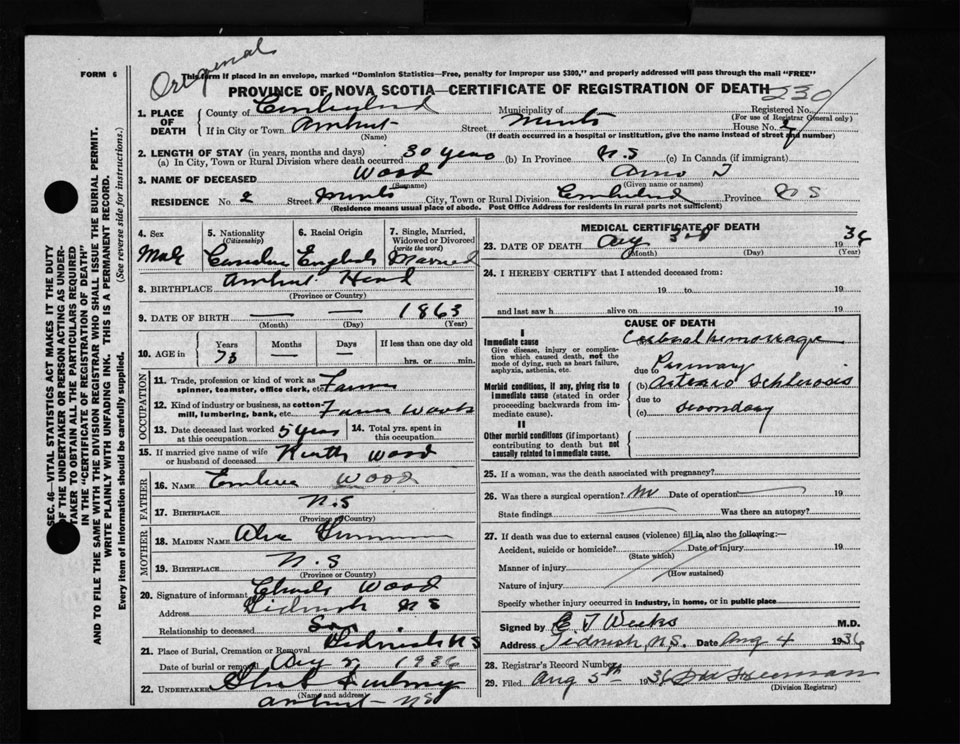 FORM 6
Original
This form if placed in an envelope, marked "Dominion Statistics—Free, penalty for improper use $300," and properly addressed will pass through the mail "FREE"
PROVINCE OF NOVA SCOTIA—CERTIFICATE OF REGISTRATION OF DEATH
230
1. PLACE OF DEATH
County of Cumberland Municipality of Registered No.
(For use of Registrar General only)
If in City or Town Amherst Street Minto House No. 2
(Name) (If death occurred in a hospital or institution, give the name instead of street and number)
2. LENGTH OF STAY (in years, months and days)
(a) In City, Town or Rural Division where death occurred 30 years (b) In Province N.S (c) In Canada (if immigrant)
3. NAME OF DECEASED Wood Amos T
(Surname) (Given name or names)
RESIDENCE No. 2 Street Minto City, Town or Rural Division Cumberland Province N S
(Residence means usual place of abode. Post Office Address for residents in rural parts not sufficient)
4. Sex Male
5. Nationality (Citizenship) Canadian
6. Racial Origin English
7. Single, Married, Widowed or Divorced (write the word) Married
8. BIRTHPLACE Amherst Head
(Province or Country)
9. DATE OF BIRTH — — 1863
(Month) (Day) (Year)
10. AGE in Years Months Days If less than one day old
73 — — hrs. or min.
OCCUPATION
11. Trade, profession or kind of work as spinner, teamster, office clerk, etc. Farmer
12. Kind of industry or business, as cotton-mill, lumbering, bank, etc. Farm Work
13. Date deceased last worked at this occupation 5 years
14. Total yrs. spent in this occupation
15. If married give name of wife or husband of deceased Wood
FATHER
16. NAME Wood
17. BIRTHPLACE N.S
(Province or Country)
MOTHER
18. MAIDEN NAME
19. BIRTHPLACE N.S
(Province or Country)
20. Signature of informant Charles Wood
Address Tidnish N S
Relationship to deceased Son
21. Place of Burial, Cremation or Removal Tidnish N S
Date of burial or removal 1936
22. UNDERTAKER
(Name and address)
Amherst - NS
MEDICAL CERTIFICATE OF DEATH
23. DATE OF DEATH Aug 3rd 1936
(Month) (Day) (Year)
24. I HEREBY CERTIFY that I attended deceased from:
19 to 19
and last saw h alive on 19
CAUSE OF DEATH
I
Immediate cause
Give disease, injury or complication which caused death, not the mode of dying, such as heart failure, asphyxia, asthenia, etc.
(a) Cerebral hemorrage
due to Primary
Morbid conditions, if any, giving rise to immediate cause (stated in order proceeding backwards from immediate cause).
(b) Arterio Schlerosis
due to
(c) secondary
II
Other morbid conditions (if important) contributing to death but not causally related to immediate cause.
25. If a woman, was the death associated with pregnancy?
26. Was there a surgical operation? no Date of operation 19
State findings Was there an autopsy?
27. If death was due to external causes (violence) fill in also the following:—
Accident, suicide or homicide? Date of injury 19
(State which)
Manner of injury
(How sustained)
Nature of injury
Specify whether injury occurred in industry, in home, or in public place
Signed by C T Weeks M.D.
Address Tidnish, N.S. Date Aug 4 1936
28. Registrar's Record Number
29. Filed Aug 5th 1936 Freeman
(Division Registrar)
SEC. 46—VITAL STATISTICS ACT MAKES IT THE DUTY
OF THE UNDERTAKER OR PERSON ACTING AS UNDER-
TAKER TO OBTAIN ALL THE PARTICULARS REQUIRED
IN THE "CERTIFICATE OF REGISTRATION OF DEATH"
AND TO FILE THE SAME WITH THE DIVISION REGISTRAR WHO SHALL ISSUE THE BURIAL PERMIT.
WRITE PLAINLY WITH UNFADING INK. THIS IS A PERMANENT RECORD.
Every item of information should be carefully supplied. (See reverse side for instructions.)